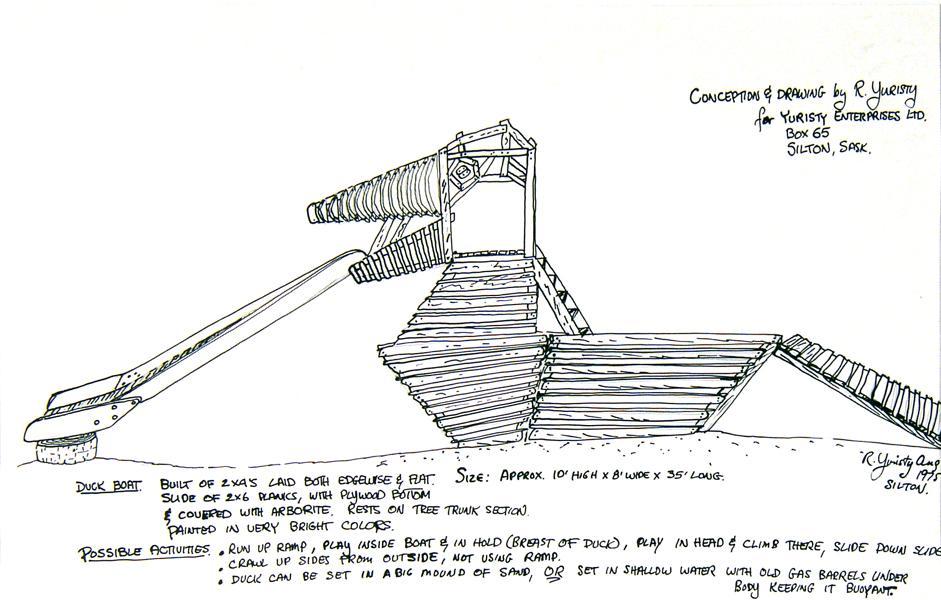 CONCEPTION & DRAWING by R. YURISTY
for YURISTY ENTERPRISES LTD.
BOX 65
SILTON, SASK.
R. Yuristy Aug
1975
SILTON.
DUCK BOAT. BUILT OF 2x4'S LAID BOTH EDGEWISE & FLAT. SIZE: APPROX. 10' HIGH x 8' WIDE x 35' LONG.
SLIDE OF 2x6 PLANKS, WITH PLYWOOD BOTTOM
& COVERED WITH ARBORITE. RESTS ON TREE TRUNK SECTION.
PAINTED IN VERY BRIGHT COLORS.
POSSIBLE ACTIVITIES. • RUN UP RAMP, PLAY INSIDE BOAT & IN HOLD (BREAST OF DUCK), PLAY IN HEAD & CLIMB THERE, SLIDE DOWN SLIDE
• CRAWL UP SIDES FROM OUTSIDE, NOT USING RAMP.
• DUCK CAN BE SET IN A BIG MOUND OF SAND, OR SET IN SHALLOW WATER WITH OLD GAS BARRELS UNDER
BODY KEEPING IT BUOYANT.